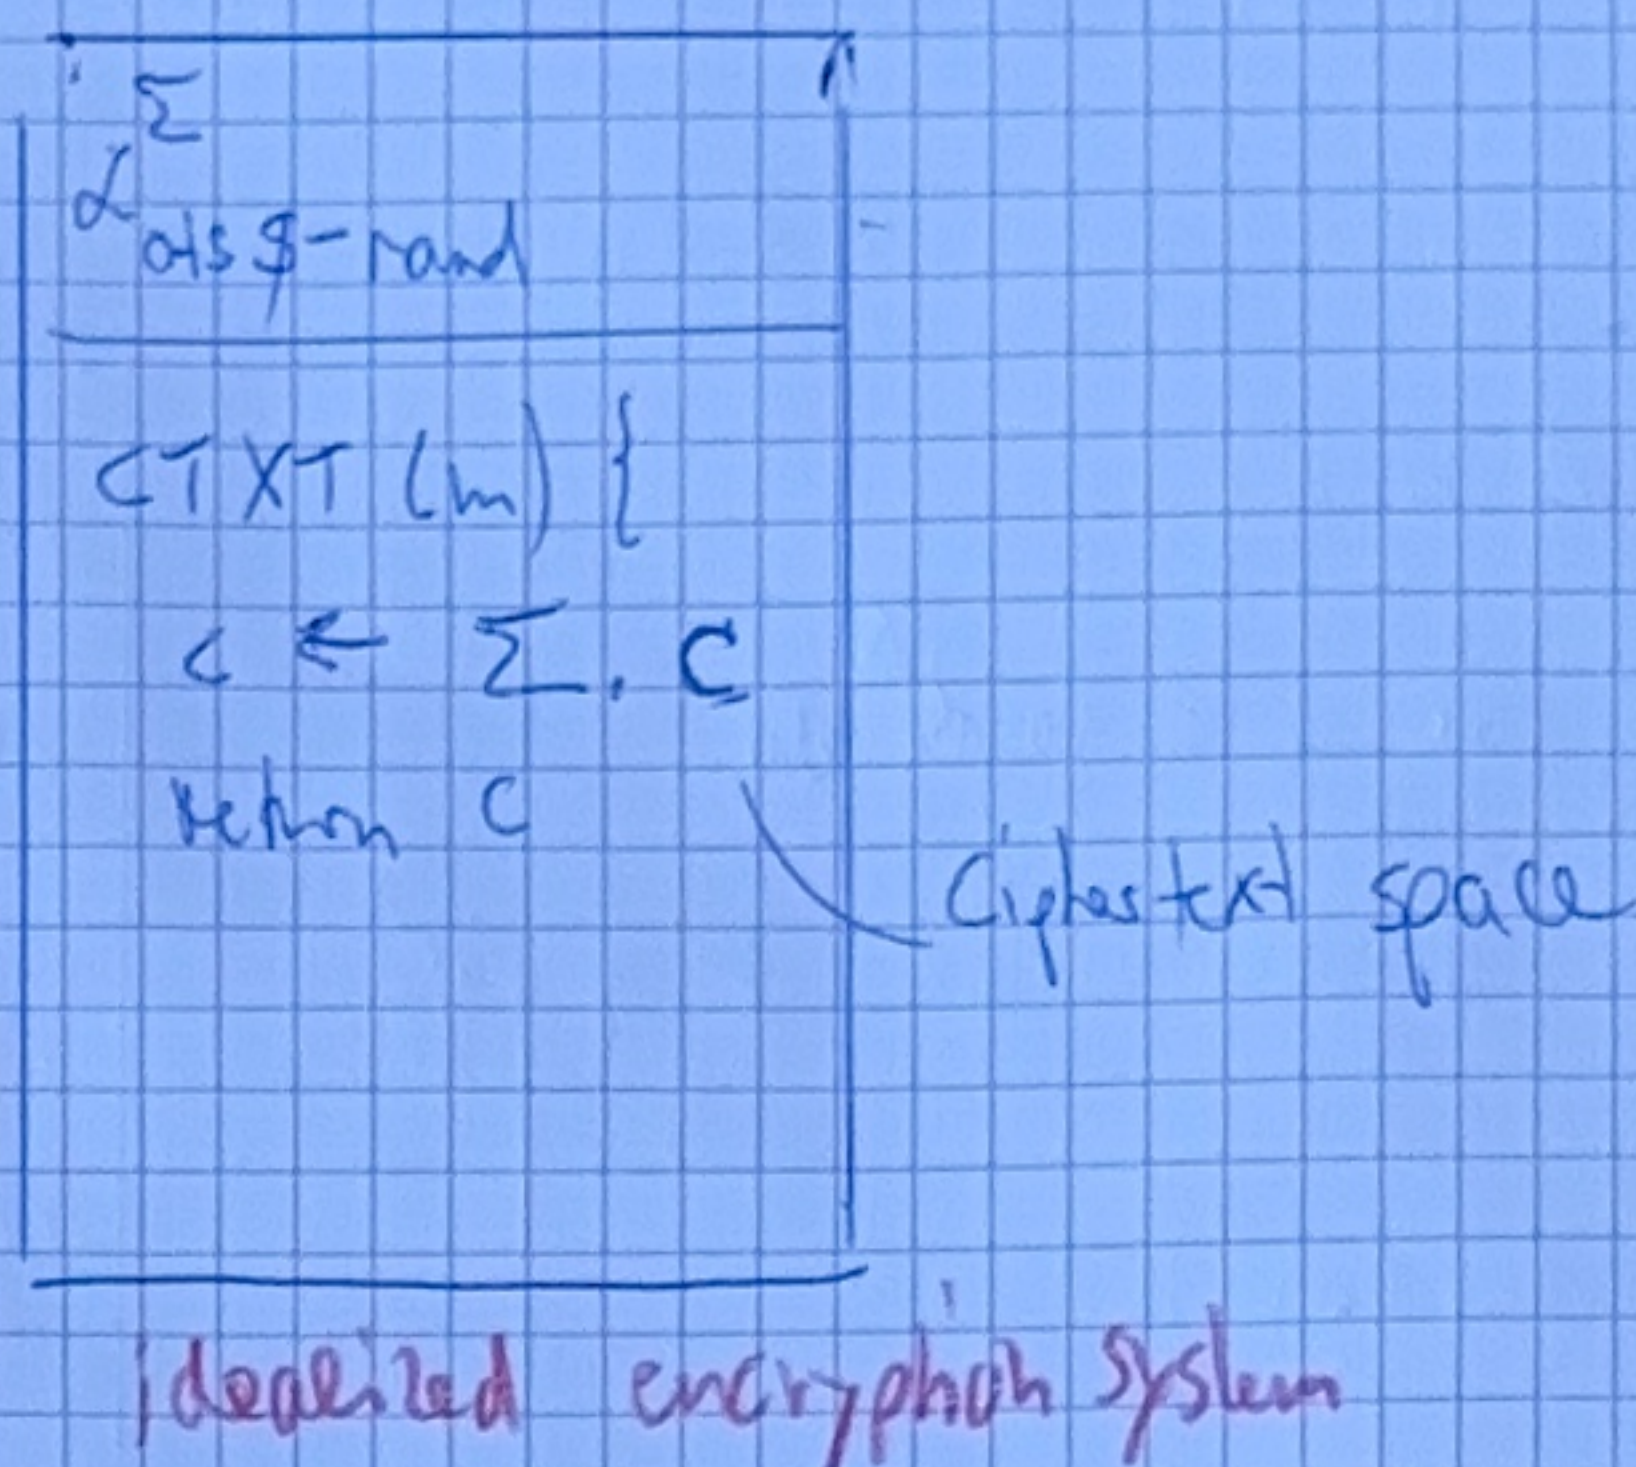 Σ
L ots$-rand
CTXT (m) {
c ← Σ. C
return c
Ciphertext space
idealized encryption system